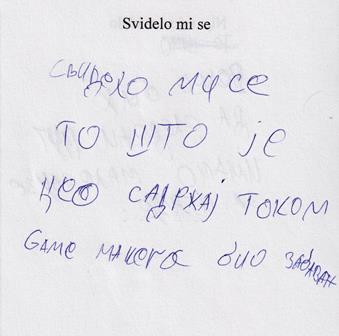 Svidelo mi se
свидело ми се
то што је
цео садржај током
Game makera био забаван